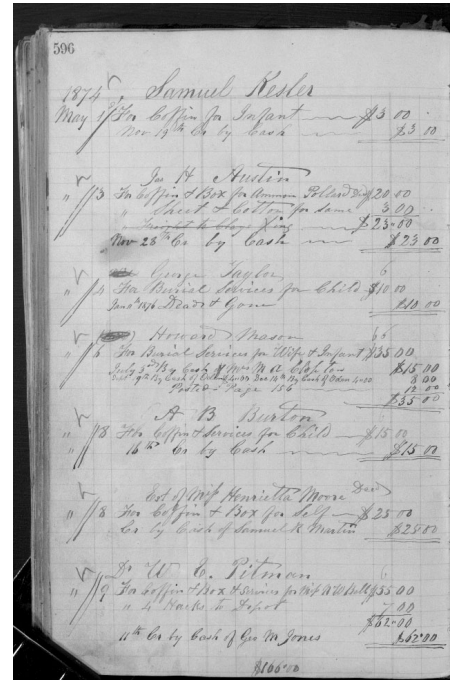 596
1874 Samuel Kesler
May For Coffin for Infant $3 00
Nov 19th Cr by Cash $3 00
Jas H Austin
" 3 For Coffin & Box for Pollard Decd $20.00
" Sheet & Cotton for same 3 00
$23.00
Nov 28th Cr by Cash $23 00
George Taylor 6
" 4 For Burial Services for Child $10 00
1876 Dead & Gone $10 00
Howard Mason 66
" 6 For Burial Services for Wife & Infant $35 00
July 3rd By Cash of Mrs M A $15 00
9th By Cash of Dec 14th By Cash of 4.00 8 00
Posted Page 156 12 00
$35 00
A B Burton
" 8 For Coffin & Services for Child $15 00
16th Cr by Cash $15 00
Est of Miss Henrietta Moore Decd
" 8 For Coffin & Box for Self $25 00
Cr by Cash of Samuel R Martin $25 00
Dr W. E. Pitman 6
" 9 For Coffin & Box & Services for A W Bell $55 00
" 4 Hacks to Depot 7 00
$62.00
11th Cr by Cash of Geo M Jones $62.00
$166.00